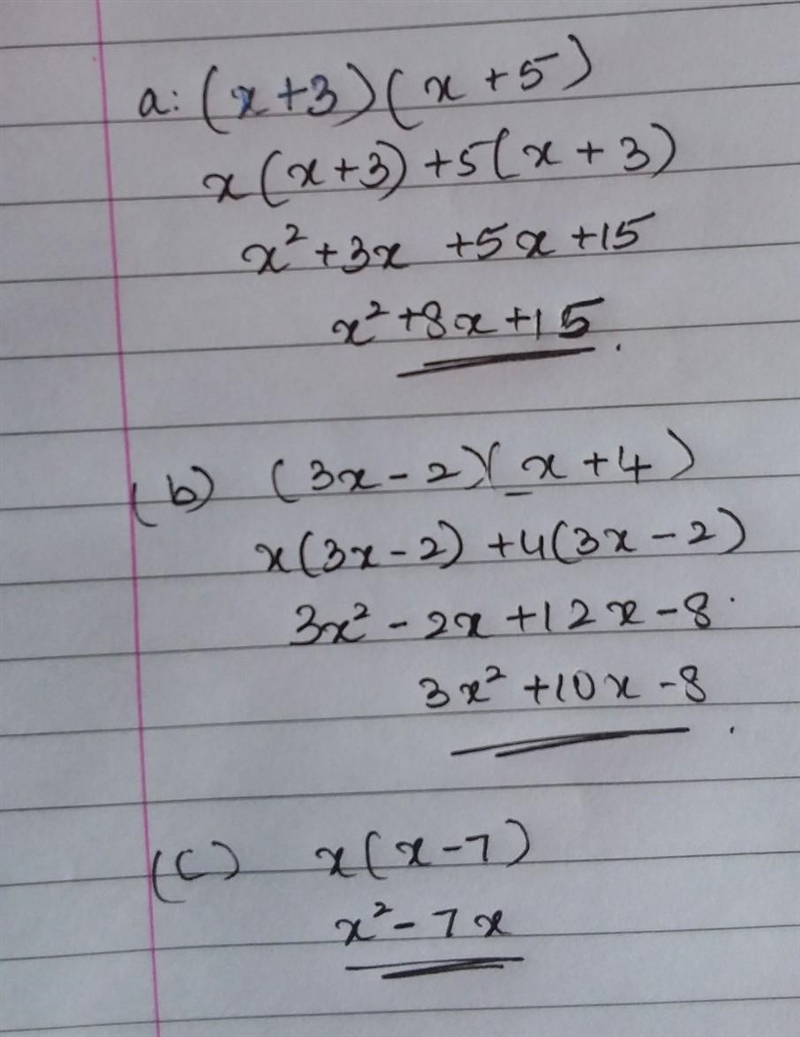 a: (x+3)(x+5)
x(x+3)+5(x+3)
x²+3x +5x+15
x²+8x+15.
(b) (3x-2)(x+4)
x(3x-2)+4(3x-2)
3x²-2x+12x-8.
3x²+10x-8.
(c) x(x-7)
x²-7x